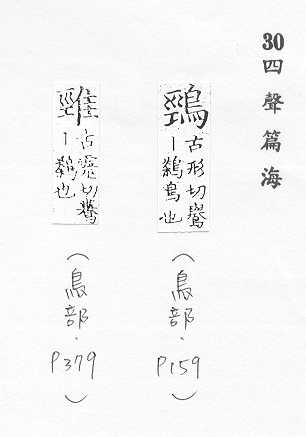 30四聲篇海
鵛
古形切鸄
丨鷄鳥也
(鳥部.P159)
古
丨鷄也
(鳥部.P379)